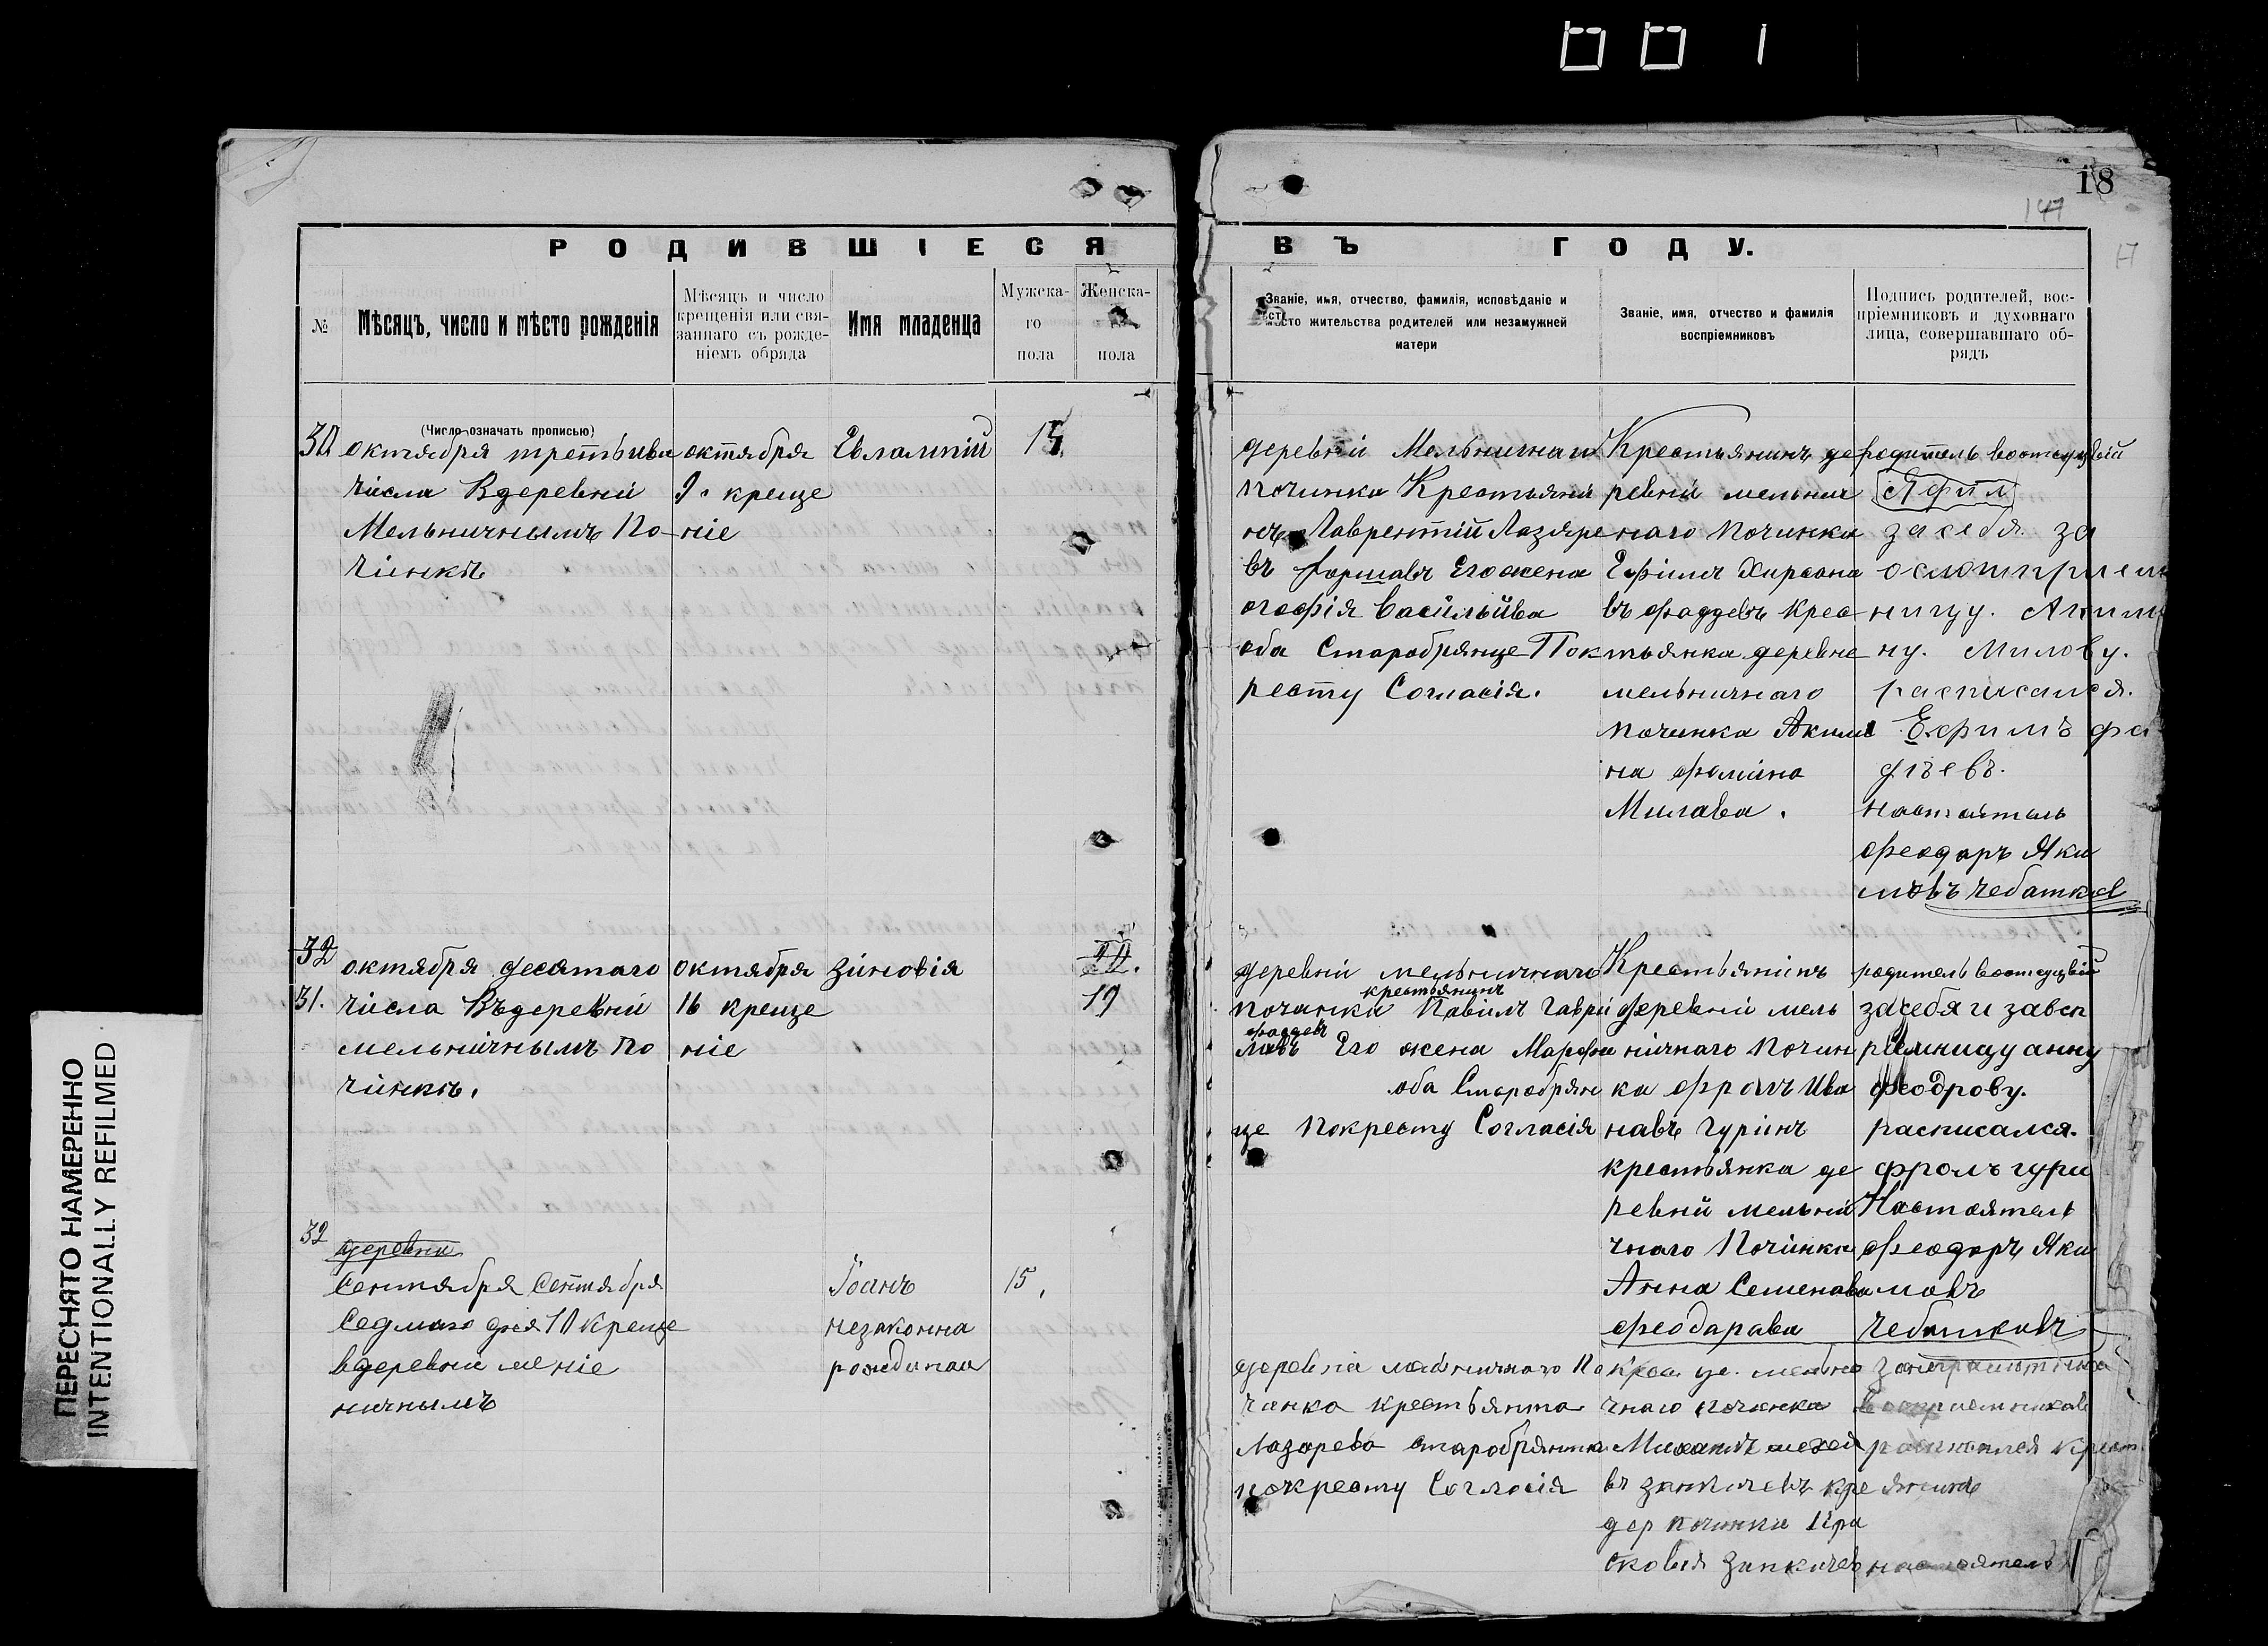 18
147
РОДИВШІЕСЯ ВЪ ГОДУ.
№
Мѣсяцъ, число и мѣсто рожденія
Мѣсяцъ и число
крещенія или свя-
заннаго съ рожде-
ніемъ обряда
Имя младенца
Мужска-
го
пола
Женска-
пола
Званіе, имя, отчество, фамилія, исповѣданіе и
мѣсто жительства родителей или незамужней
матери
Званіе, имя, отчество и фамилія
воспріемниковъ
Подпись родителей, вос-
пріемниковъ и духовнаго
лица, совершавшаго об-
рядъ
(Число означать прописью)
30
октября третьива
числа Вдеревни
Мельничнымъ По-
чинкѣ
октября
9. креще
ніе
Евлампій
15
деревни Мельничнаго
починка Крестьяни
нъ Лаврентій Лазаре
въ Горшавъ Его жена
Софія Васильива
оба Старобрянце Пок
ресту Согласія.
Крестьянинъ де
ревни мельнич
наго Починка
Ефимъ Хирсона
въ Фаддевъ Крес
тьянка деревне
мельничнаго
починка Акили
на Фомина
Милава.
родитель
за себя. за
ницу. Акили
ну. Милову.
расписался.
Ефимъ Фа
дѣевъ.
настоятель
Феодаръ Яки
мовъ Чебатков
32
31.
октября десятаго
числа Въдеревни
мельничнымъ По
чинкѣ.
октября
16 креще
ніе
Зиновія
17
деревни мельничнаго
крестьянинъ
починки Павилъ Гаври
фаддевъ
ловъ Его жена Марфа
оба Старобрян
це Покресту Согласія
Крестьянинъ
деревни мель
ничнаго Почин
ка Фролъ Ива
навъ Гуринъ
крестьянка де
ревни мельни
чнаго Починка
Анна Семенава
Феодарава
родитель
засебя и завсп
ріемницу анну
феодрову.
расписался.
фролъ гури
Настоятель
Феодоръ Яки
мовъ
Чебатковъ
32
деревни
Сентября Сентября
Седмаго дня 10 Креще
вдеревни ме ніе
ничнымъ
Іоанъ
незаконна
рожднаи
15.
деревни мельничнаго По
чинка крестьянка
Лазарева старобрянка
покресту Согласія
Крес де. мельни
чнаго починка
въ
дер починки Пра
сковья
настоятель
ПЕРЕСНЯТО НАМЕРЕННО
INTENTIONALLY REFILMED